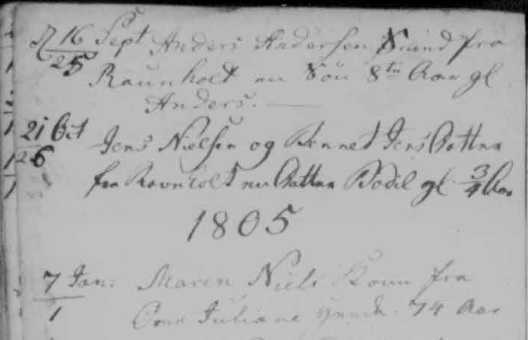 16 Sept Anders Andersen Smed fra
25 Raunholt en Sön 8te Aar gl
Anders.
21 Oct Jens Nielsen og Kennet Jens Datter
26 fra Ravnholt en Datter Bodil gl 3/4 Aar
1805
7 Jan: Maren Niels Kone fra
1 Juliane 74 Aar